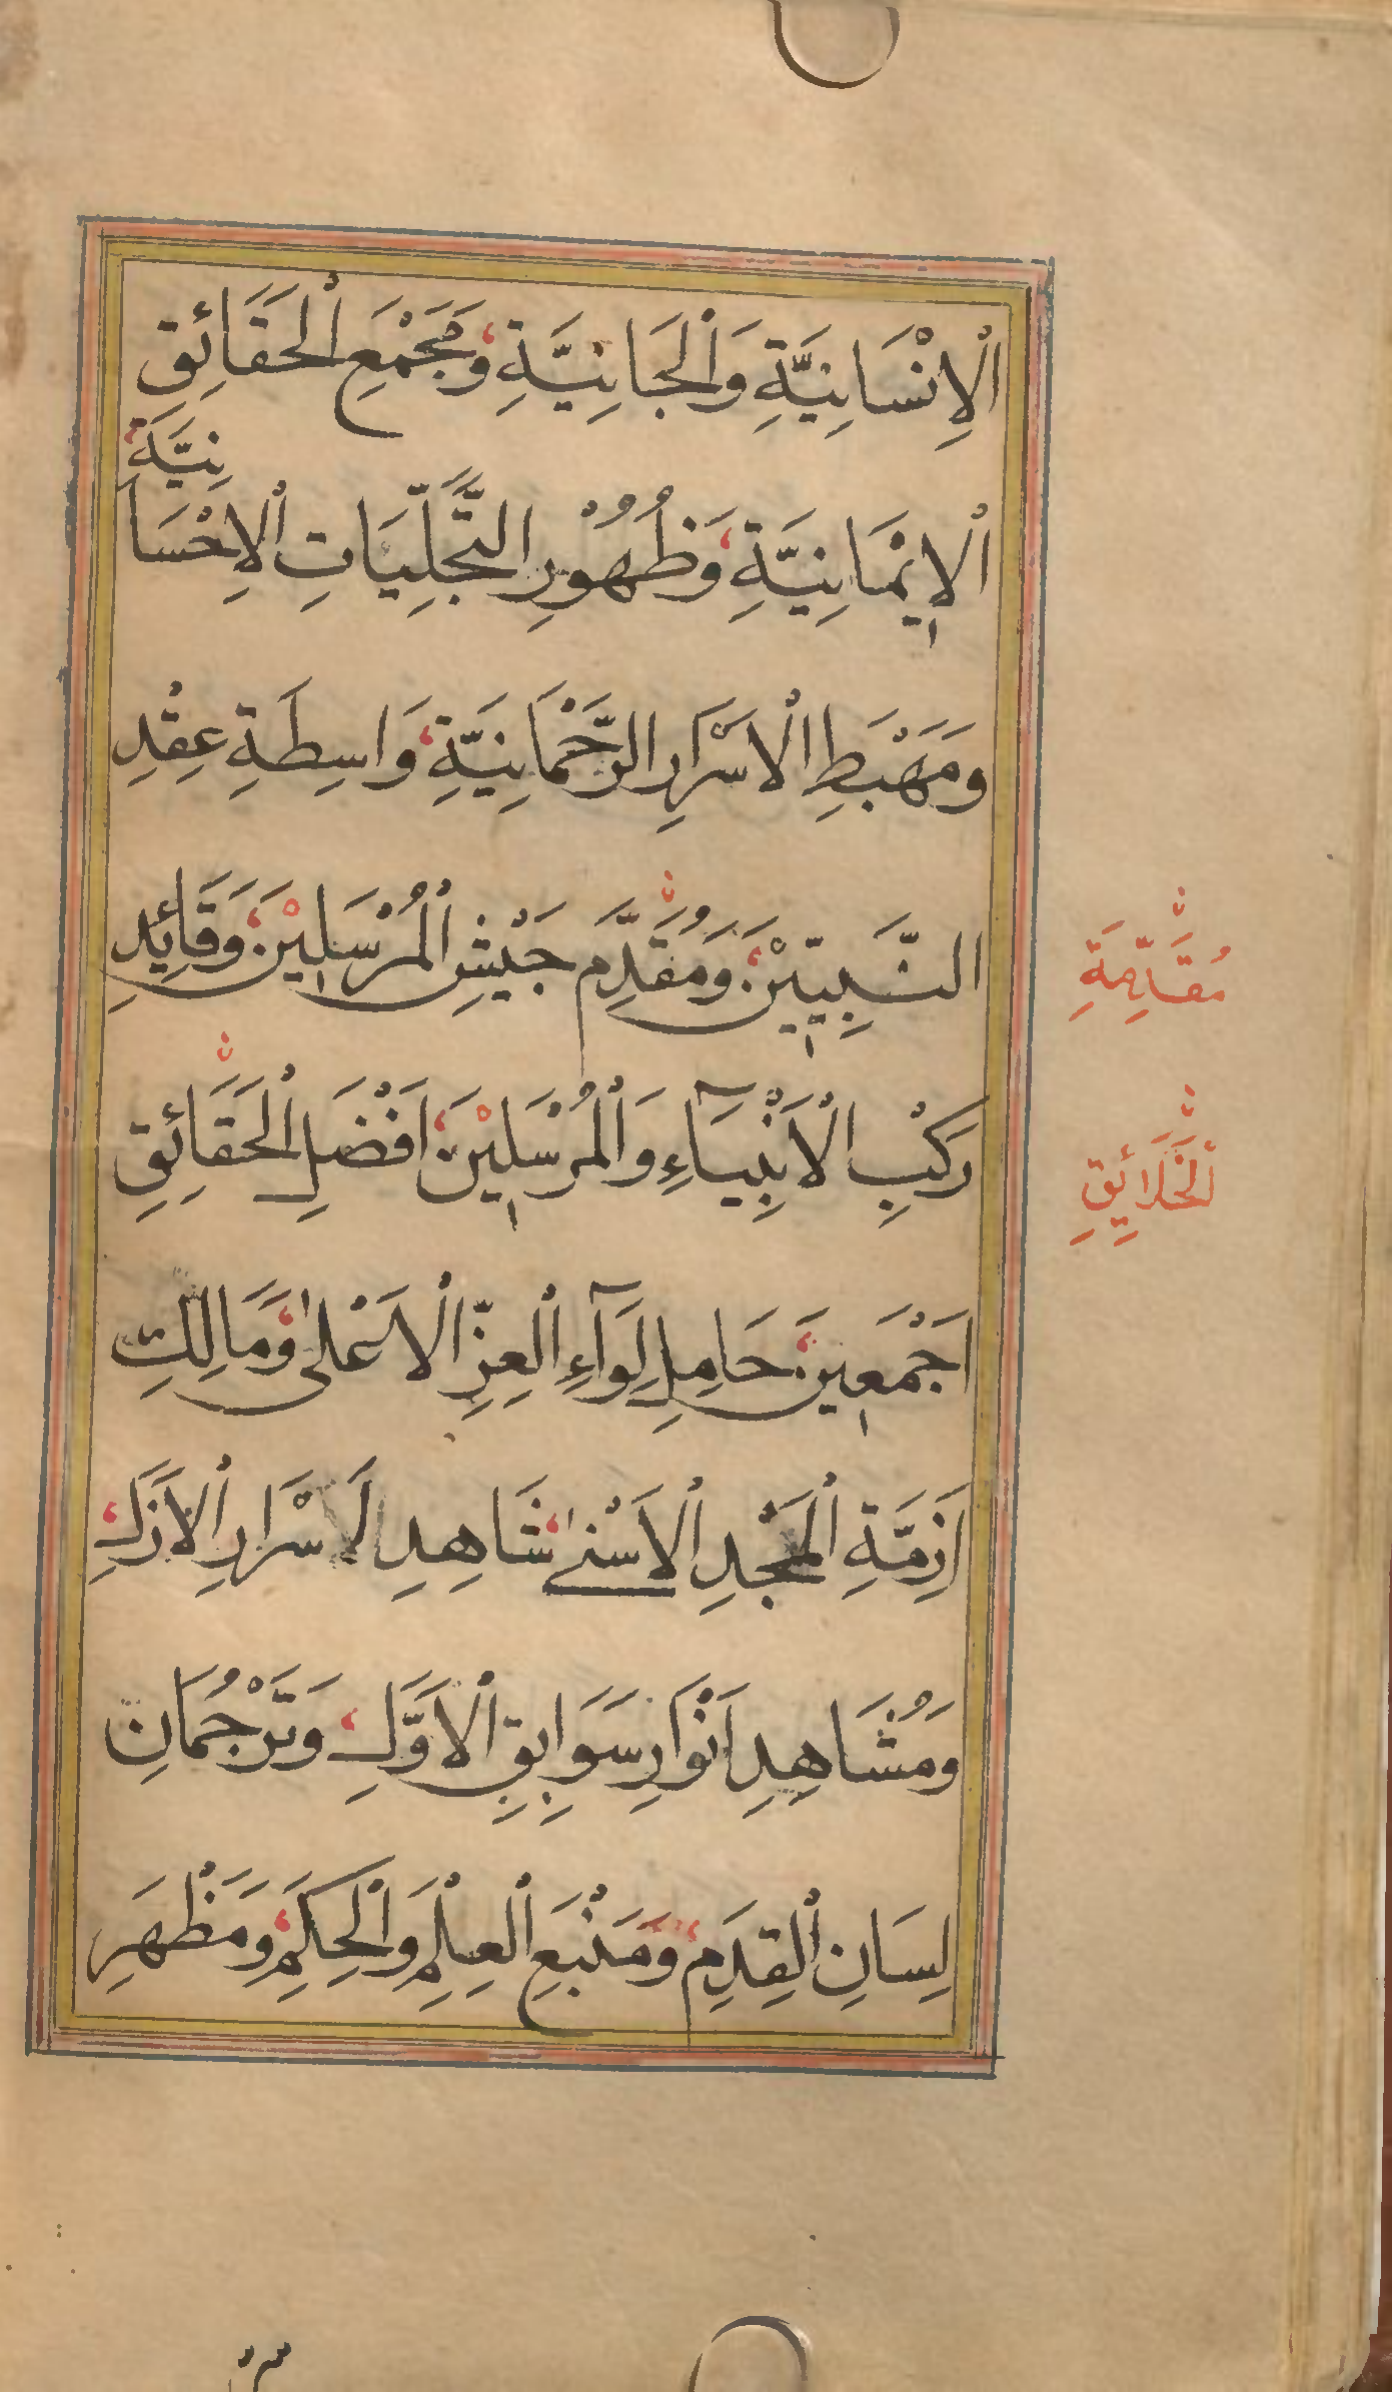 اْلاِنْسَانِيَّةِ وَاْلجَانِيَّةِ وَمَجْمَعِ اْلحَقَائِقِ
اْلاِيْمَانِيَّةِ وَظُهُوْرِ التَّجَلِّيَاتِ اْلاِحْسَا
نِيَّةِ
وَمَهْبَطِ اْلاَسْرَارِ الرَّحْمَانِيَّةِ وَاسِطَةِ عِقْدِ
النَّبِيِّيْنَ وَمُقَدَّمِ جَيْشِ اْلمُرْسَلِيْنَ وَقَائِدِ
مُقَدِّمَةِ
رَكْبِ اْلاَنْبِيَآءِ وَاْلمُرْسَلِيْنَ اَفْضَلِ اْلحَقَائِقِ
اْلخَلَائِقِ
اَجْمَعِيْنَ حَامِلِ لِوَآءِ اْلعِزِّ اْلاَعْلٰى وَمَالِكِ
اَزِمَّةِ اْلمَجْدِ اْلاَسْنٰى شَاهِدِ لَاسْرَارِ اْلاَزَلِ
وَمُشَاهِدِ اَنْوَارِ سَوَابِقِ اْلاَوَّلِ وَتَرْجُمَانِ
لِسَانِ اْلقِدَمِ وَمَنْبَعِ اْلعِلْمِ وَاْلحِكَمِ وَمَظْهَرِ